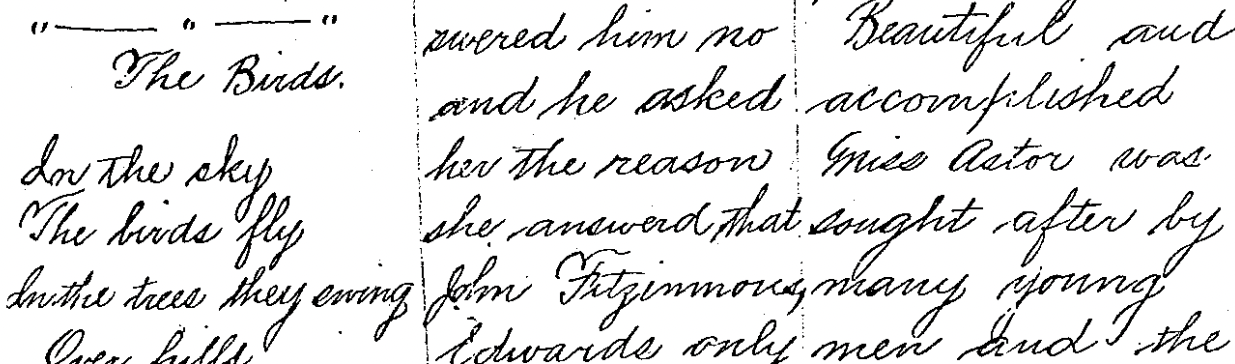 " ——— " ——— "
The Birds.
In the sky
The birds fly
In the trees they swing
Over hills
swered him no
and he asked
her the reason
she answerd that
John Fitzimmons,
Edwards only
Beautiful and
accomplished
Miss Astor was
sought after by
many young
men and the